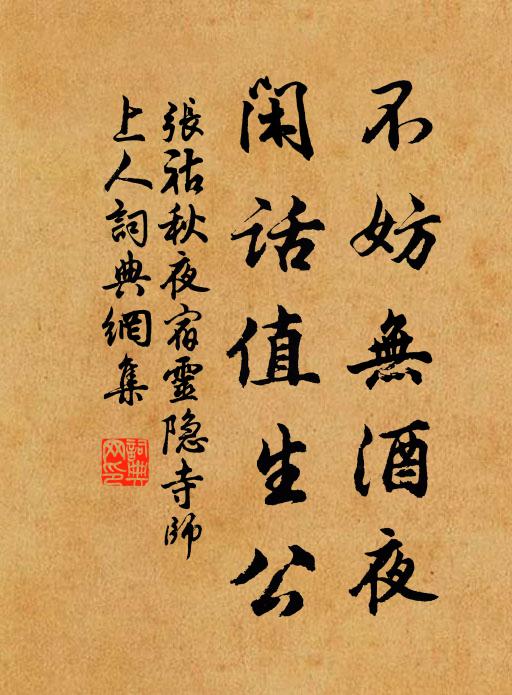 不妨無酒夜
閑話值生公
張祜秋夜宿靈隐寺師
上人詞典網集
詞典
网印